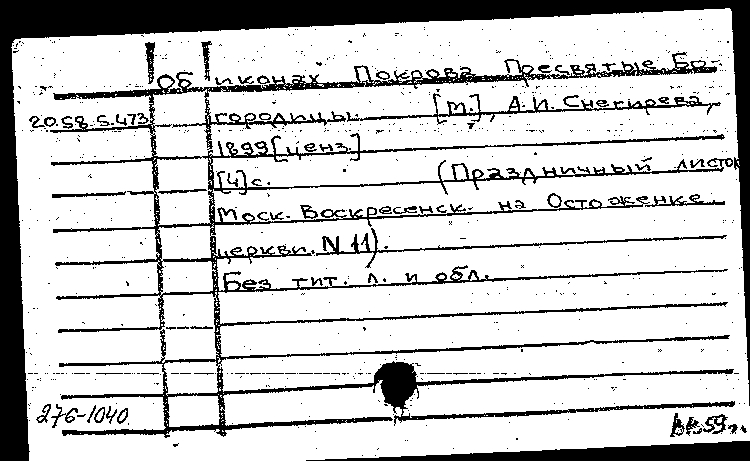 Об иконах Покрова Пресвятые Бо-
20.58.5.473 городицы. [М.], А.И. Снегирева,
1899 [ценз.]
[4] с. (Праздничный листок
Моск. Воскресенск. на Остоженке
церкви. N 11).
Без тит. л. и обл.
276-1040